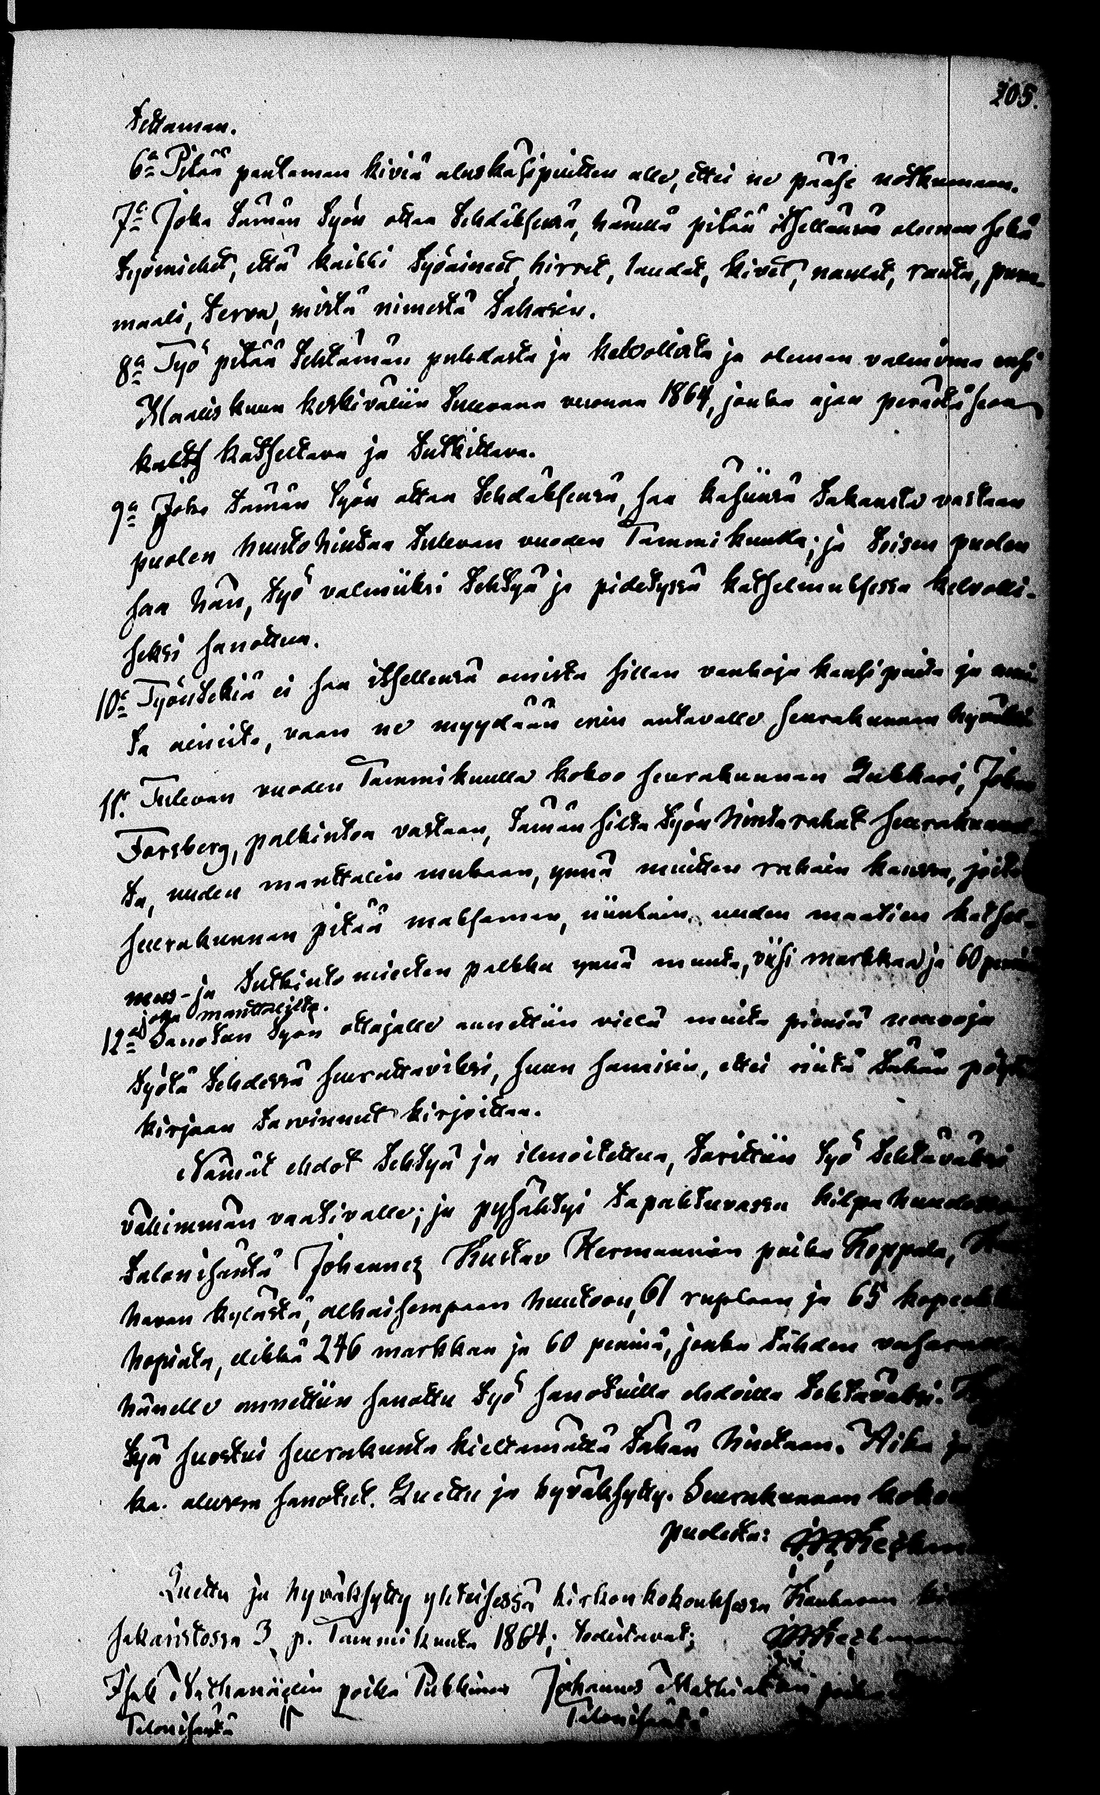 205.
tettaman.
6:a Pitää pantaman kiviä aluskäsipuitten alle, ettei ne pääse notkumaan.
7:a Joka tämän työn ottaa tehdäksensä, hänellä pitää itsellänsä oleman sekä
työmiehet, että kaikki työaineet, hirret, laudat, kivet, naulat, rauta, puna-
maali, terva, mistä nimestä tahansa.
8:a Työ pitää tehtämän puhdasta ja kelvollista ja oleman valmiina ensi
Maaliskuun keskiväliin tulevana vuonna 1864, jonka ajan perästä se on
katseltava ja tutkittava.
9:a Joka tämän työn ottaa tehdäksensä, saa käsiinsä takausta vastaan
puolen huutohintaa tulevan vuoden Tammikuulla; ja toisen puolen
saa hän, työ valmiiksi tehtyä ja pidetyssä katselmuksessa kelvolli-
seksi sanottua.
10:a Työntekiä ei saa itsellensä omista sillan vanhoja kansipuita ja mui-
ta aineita, vaan ne myydään enin antavalle seurakunnan hyväksi
11:a Tulevan vuoden Tammikuulla kokoo seurakunnan Lukkari, Johan
Forsberg, palkintoa vastaan, tämän silta työn hintarahat seurakunnal-
ta, uuden manttalin mukaan, ynnä muitten rahain kanssa, joita
seurakunnan pitää maksaman, niinkuin uuden maatien katsel-
mus- ja tutkinto miesten palkka ynnä muuta, viisi markkaa ja 60 penniä
joka manttalilta.
12:a Sanotun työn ottajalle annettiin vielä muita pieniä neuvoja
työtä tehdessä seurattaviksi, kuun samisin, ettei niitä tähän pöytä
kirjaan tarvinnut kirjoittaa.
Nämät ehdot tehtyä ja ilmoitettua, tarittiin työ tehtäväksi
vähimmän vaativalle; ja pysähtyi tapahtuvassa kilpa huudossa
talonisäntä Johannes Kustav Hermannin poika Koppala,
havan kylästä, alhaisempaan huutoon, 61 ruplaan ja 65 kopeekkaa
hopiata, elikkä 246 markkaa ja 60 penniä, jonka tähden
hänelle annettiin sanottu työ sanotuilla ehdoilla tehtäväksi.
tyä suostui seurakunta kieltämättä tähän hintaan. Aika ja
ka. aluksa sanotut. Luettu ja hyväksytty. Seurakunnan
puolesta:
Luettu ja hyväksytty yhteisessä kirkonkokouksessa Kauhavan
sakaristossa 3 p. Tammikuuta 1864; todistavat;
Isak Nathanäelin poika Pukkinen Johannes Mathiaksen poika
Talonisäntä Talonisäntä